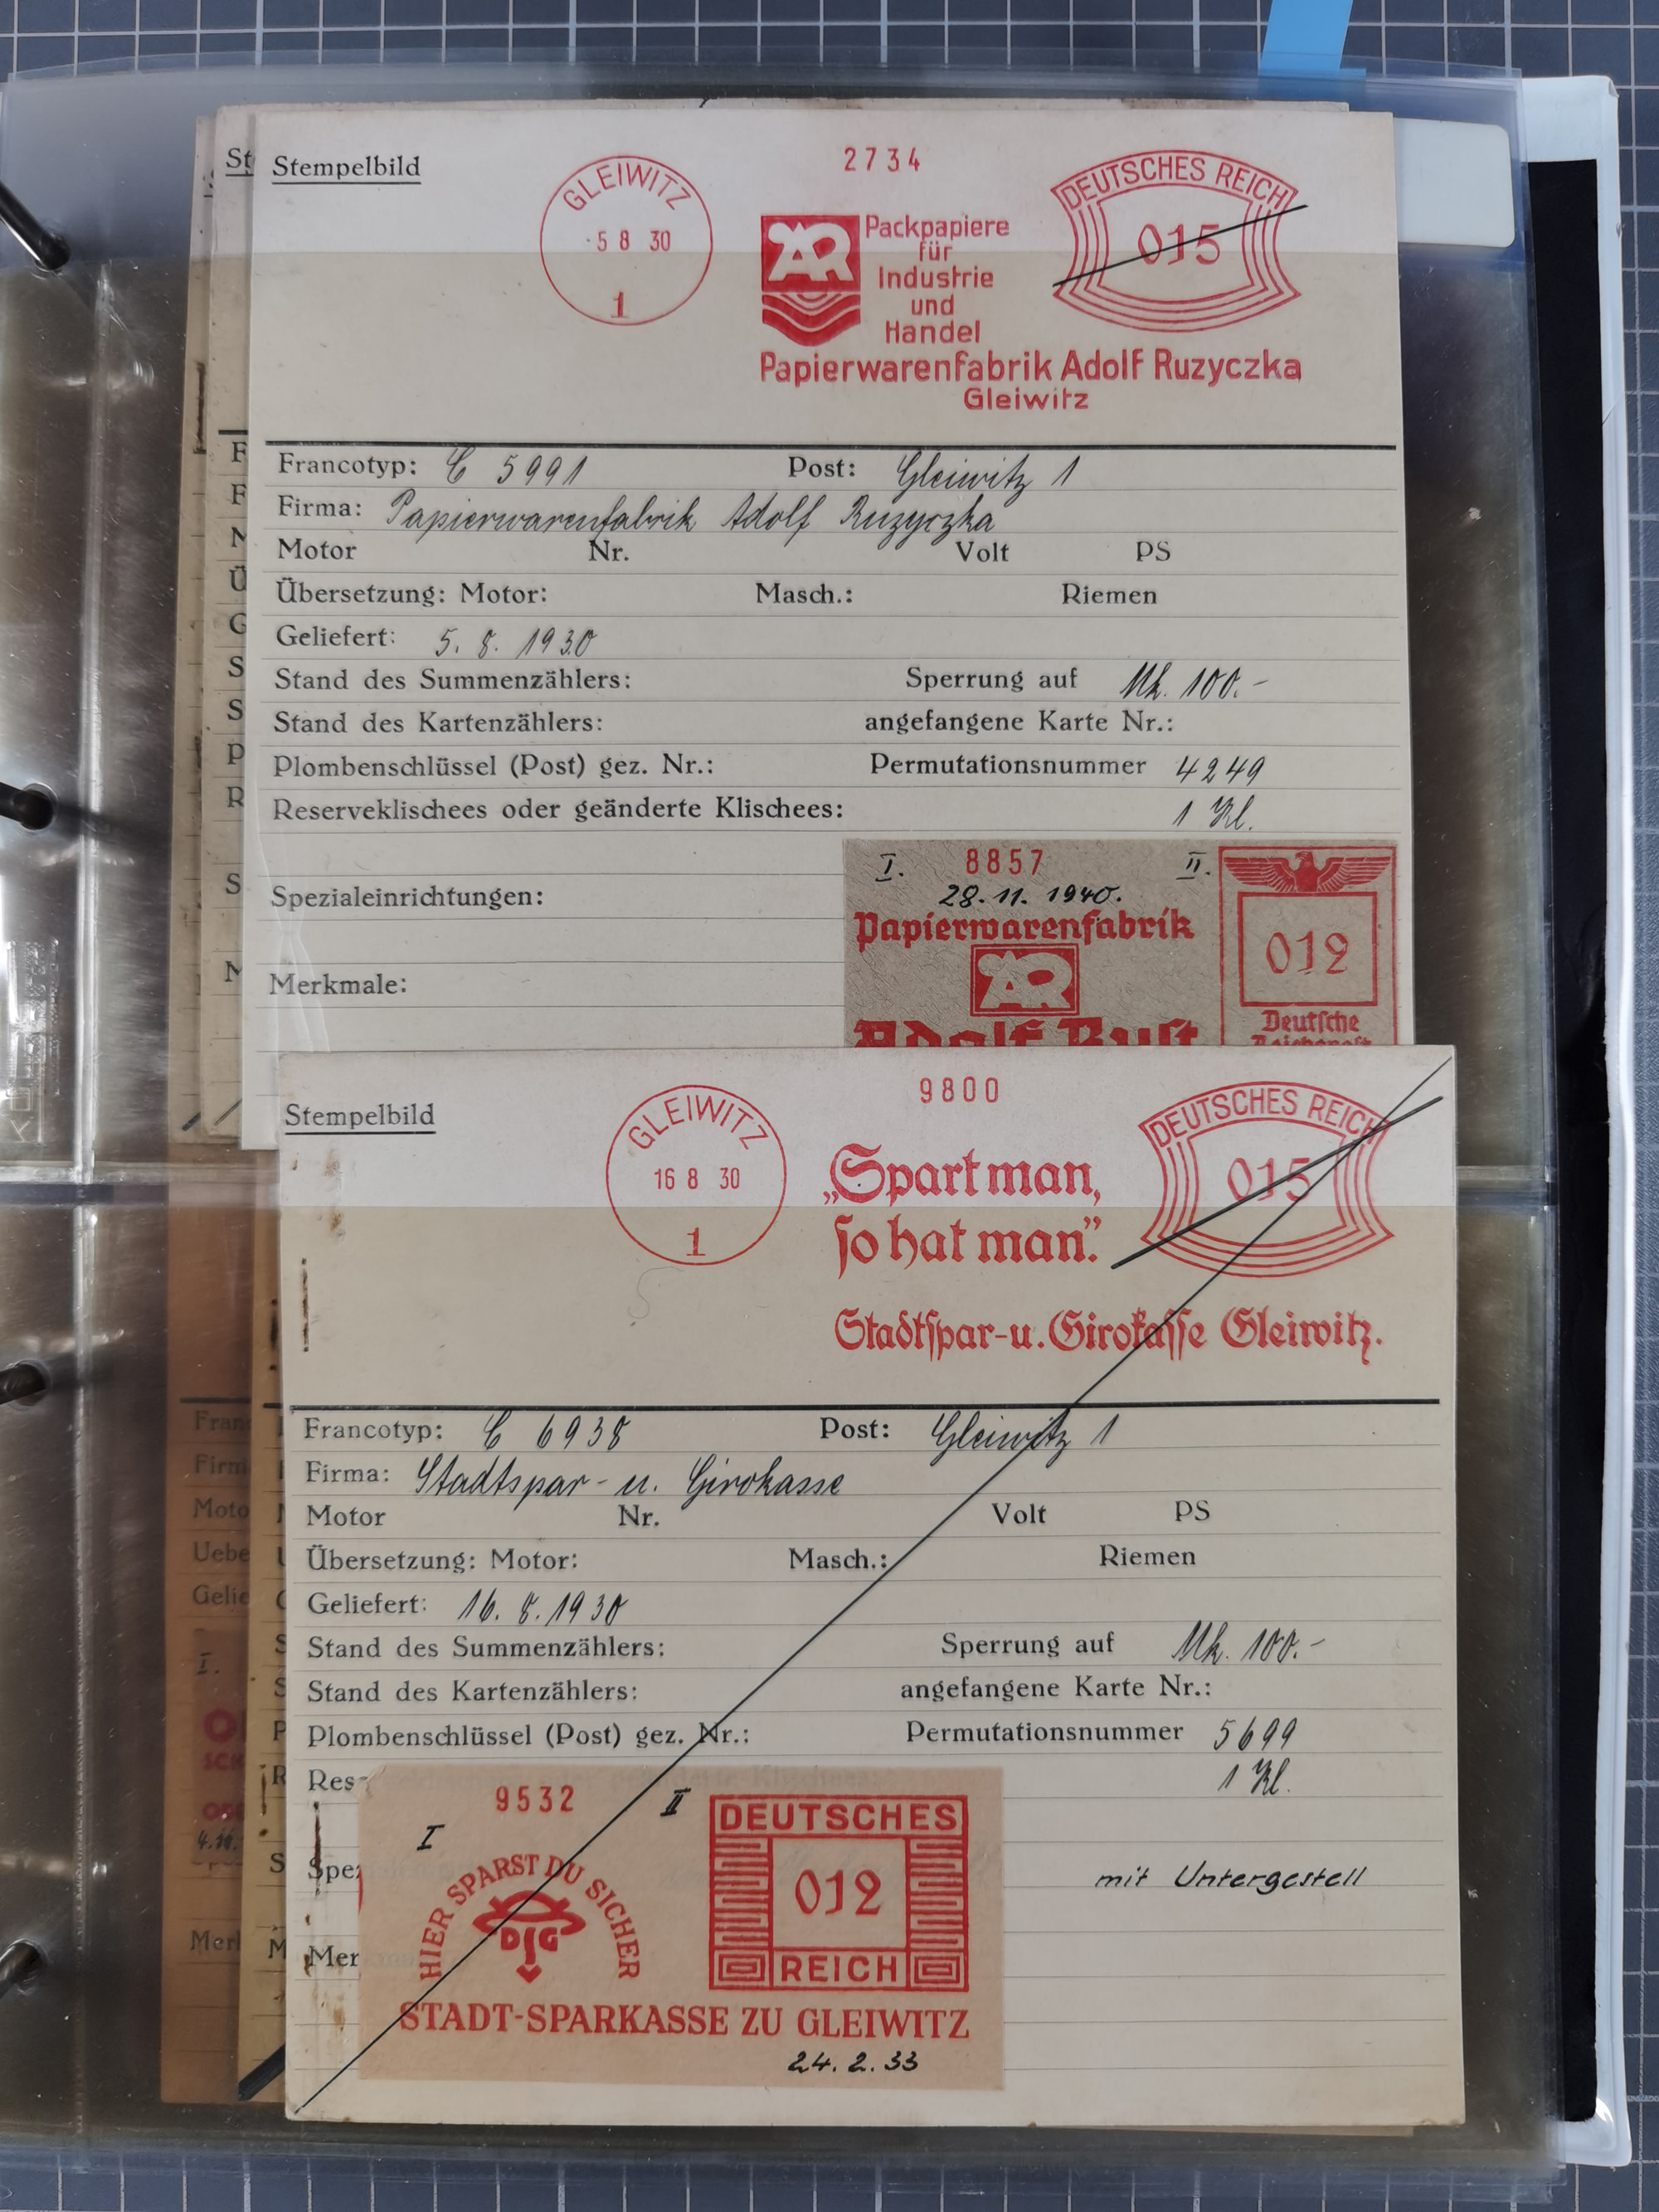 Stempelbild
GLEIWITZ
5 8 30
1
2734
AR
Packpapiere
für
Industrie
und
Handel
Papierwarenfabrik Adolf Ruzyczka
Gleiwitz
DEUTSCHES REICH
015
Francotyp: C 5991 Post: Gleiwitz 1
Firma: Papierwarenfabrik Adolf Ruzyczka
Motor Nr. Volt PS
Übersetzung: Motor: Masch.: Riemen
Geliefert: 5. 8. 1930
Stand des Summenzählers: Sperrung auf Mk. 100.-
Stand des Kartenzählers: angefangene Karte Nr.:
Plombenschlüssel (Post) gez. Nr.: Permutationsnummer 4249
Reserveklischees oder geänderte Klischees: 1 Kl.
Spezialeinrichtungen:
Merkmale:
I. 8857 II.
28. 11. 1940.
Papierwarenfabrik
AR
Adolf Rust
012
Deutſche
Reichspost
Stempelbild
GLEIWITZ
16 8 30
1
9800
„Spart man,
ſo hat man."
Stadtſpar-u. Girokaſſe Gleiwitz.
DEUTSCHES REICH
015
Francotyp: C 6938 Post: Gleiwitz 1
Firma: Stadtspar- u. Girokasse
Motor Nr. Volt PS
Übersetzung: Motor: Masch.: Riemen
Geliefert: 16. 8. 1930
Stand des Summenzählers: Sperrung auf Mk. 100.-
Stand des Kartenzählers: angefangene Karte Nr.:
Plombenschlüssel (Post) gez. Nr.: Permutationsnummer 5699
Res 1 Kl.
Spez mit Untergestell
Mer
I 9532 II
HIER SPARST DU SICHER
DIG
STADT-SPARKASSE ZU GLEIWITZ
24. 2. 33
DEUTSCHES
012
REICH